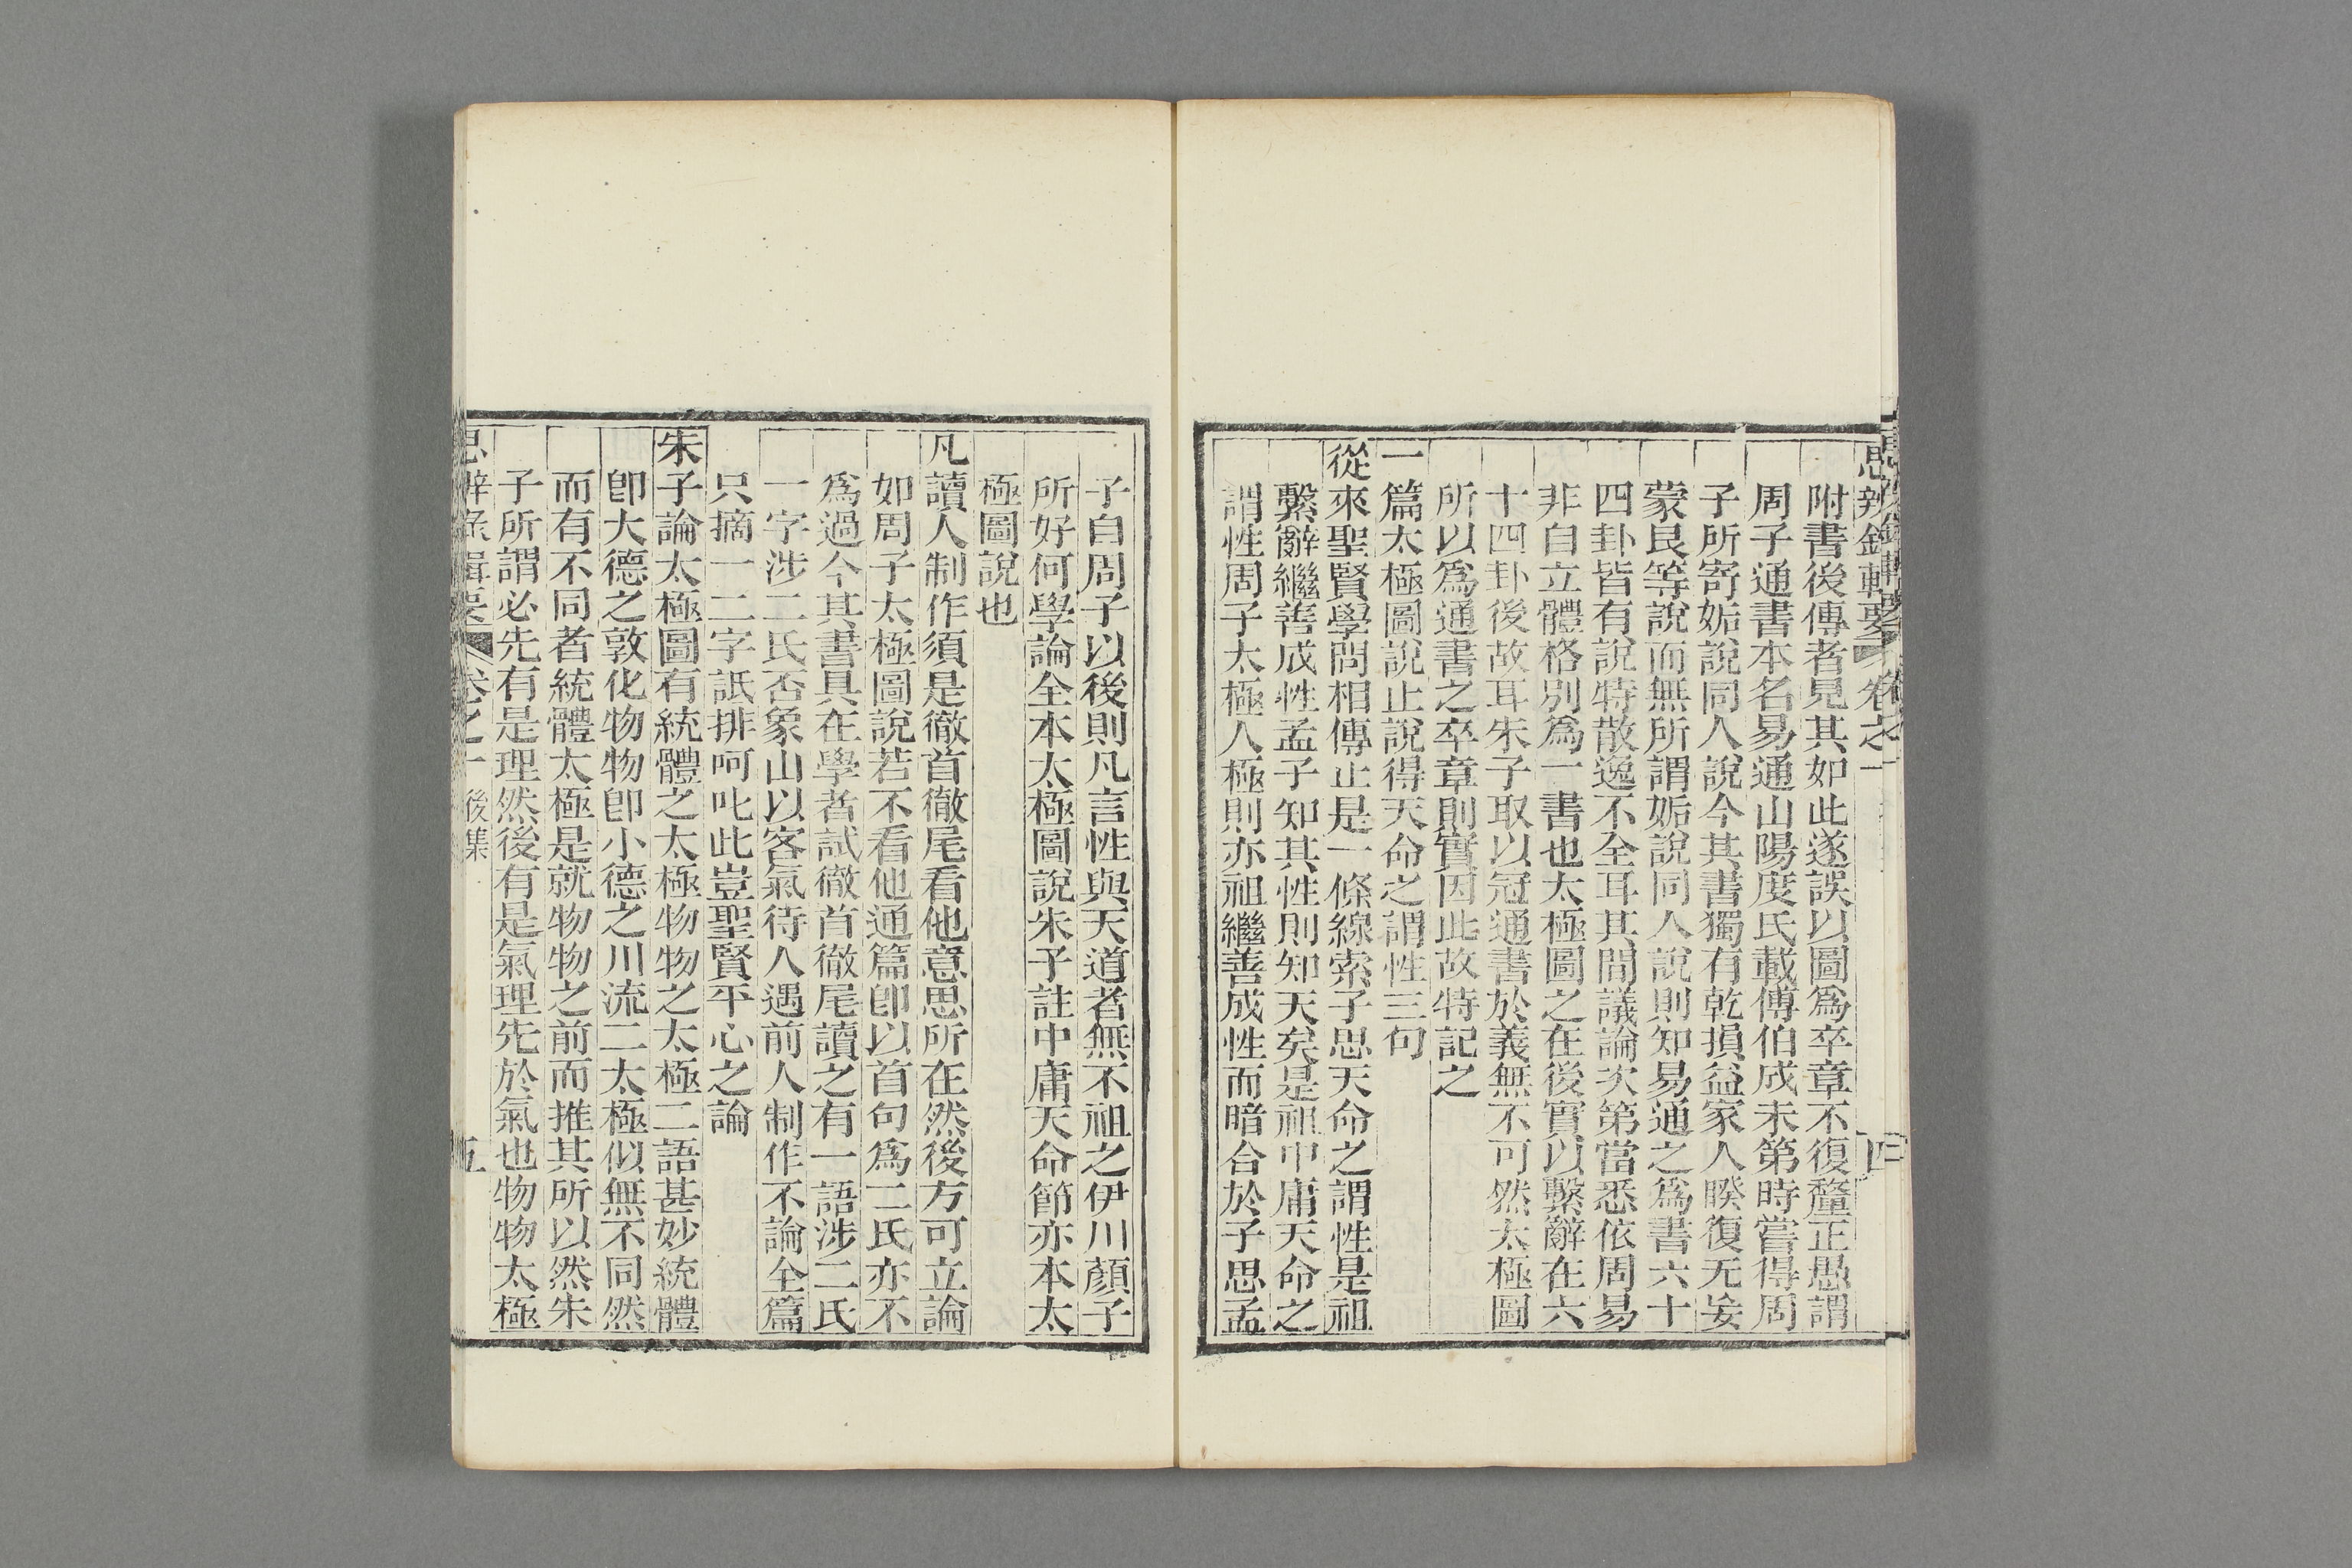 思辨錄輯要 卷之一 四
附書後傳者見其如此遂誤以圖爲卒章不復釐正愚謂
周子通書本名易通山陽度氏載傅伯成未第時嘗得周
子所寄姤說同人說今其書獨有乾損益家人睽復无妄
蒙艮等說而無所謂姤說同人說則知易通之爲書六十
四卦皆有說特散逸不全耳其間議論次第當悉依周易
非自立體格別爲一書也太極圖之在後實以繫辭在六
十四卦後故耳朱子取以冠通書於義無不可然太極圖
所以爲通書之卒章則實因此故特記之
一篇太極圖說止說得天命之謂性三句
從來聖賢學問相傳止是一條線索子思天命之謂性是祖
繫辭繼善成性孟子知其性則知天矣是祖中庸天命之
謂性周子太極人極則亦祖繼善成性而暗合於子思孟
子自周子以後則凡言性與天道者無不祖之伊川顏子
所好何學論全本太極圖說朱子註中庸天命節亦本太
極圖說也
凡讀人制作須是徹首徹尾看他意思所在然後方可立論
如周子太極圖說若不看他通篇卽以首句爲二氏亦不
爲過今其書具在學者試徹首徹尾讀之有一語涉二氏
一字涉二氏否象山以客氣待人遇前人制作不論全篇
只摘一二字詆排呵叱此豈聖賢平心之論
朱子論太極圖有統體之太極物物之太極二語甚妙統體
卽大德之敦化物物卽小德之川流二太極似無不同然
而有不同者統體太極是就物物之前而推其所以然朱
子所謂必先有是理然後有是氣理先於氣也物物太極
思辨錄輯要 卷之一 後集 五